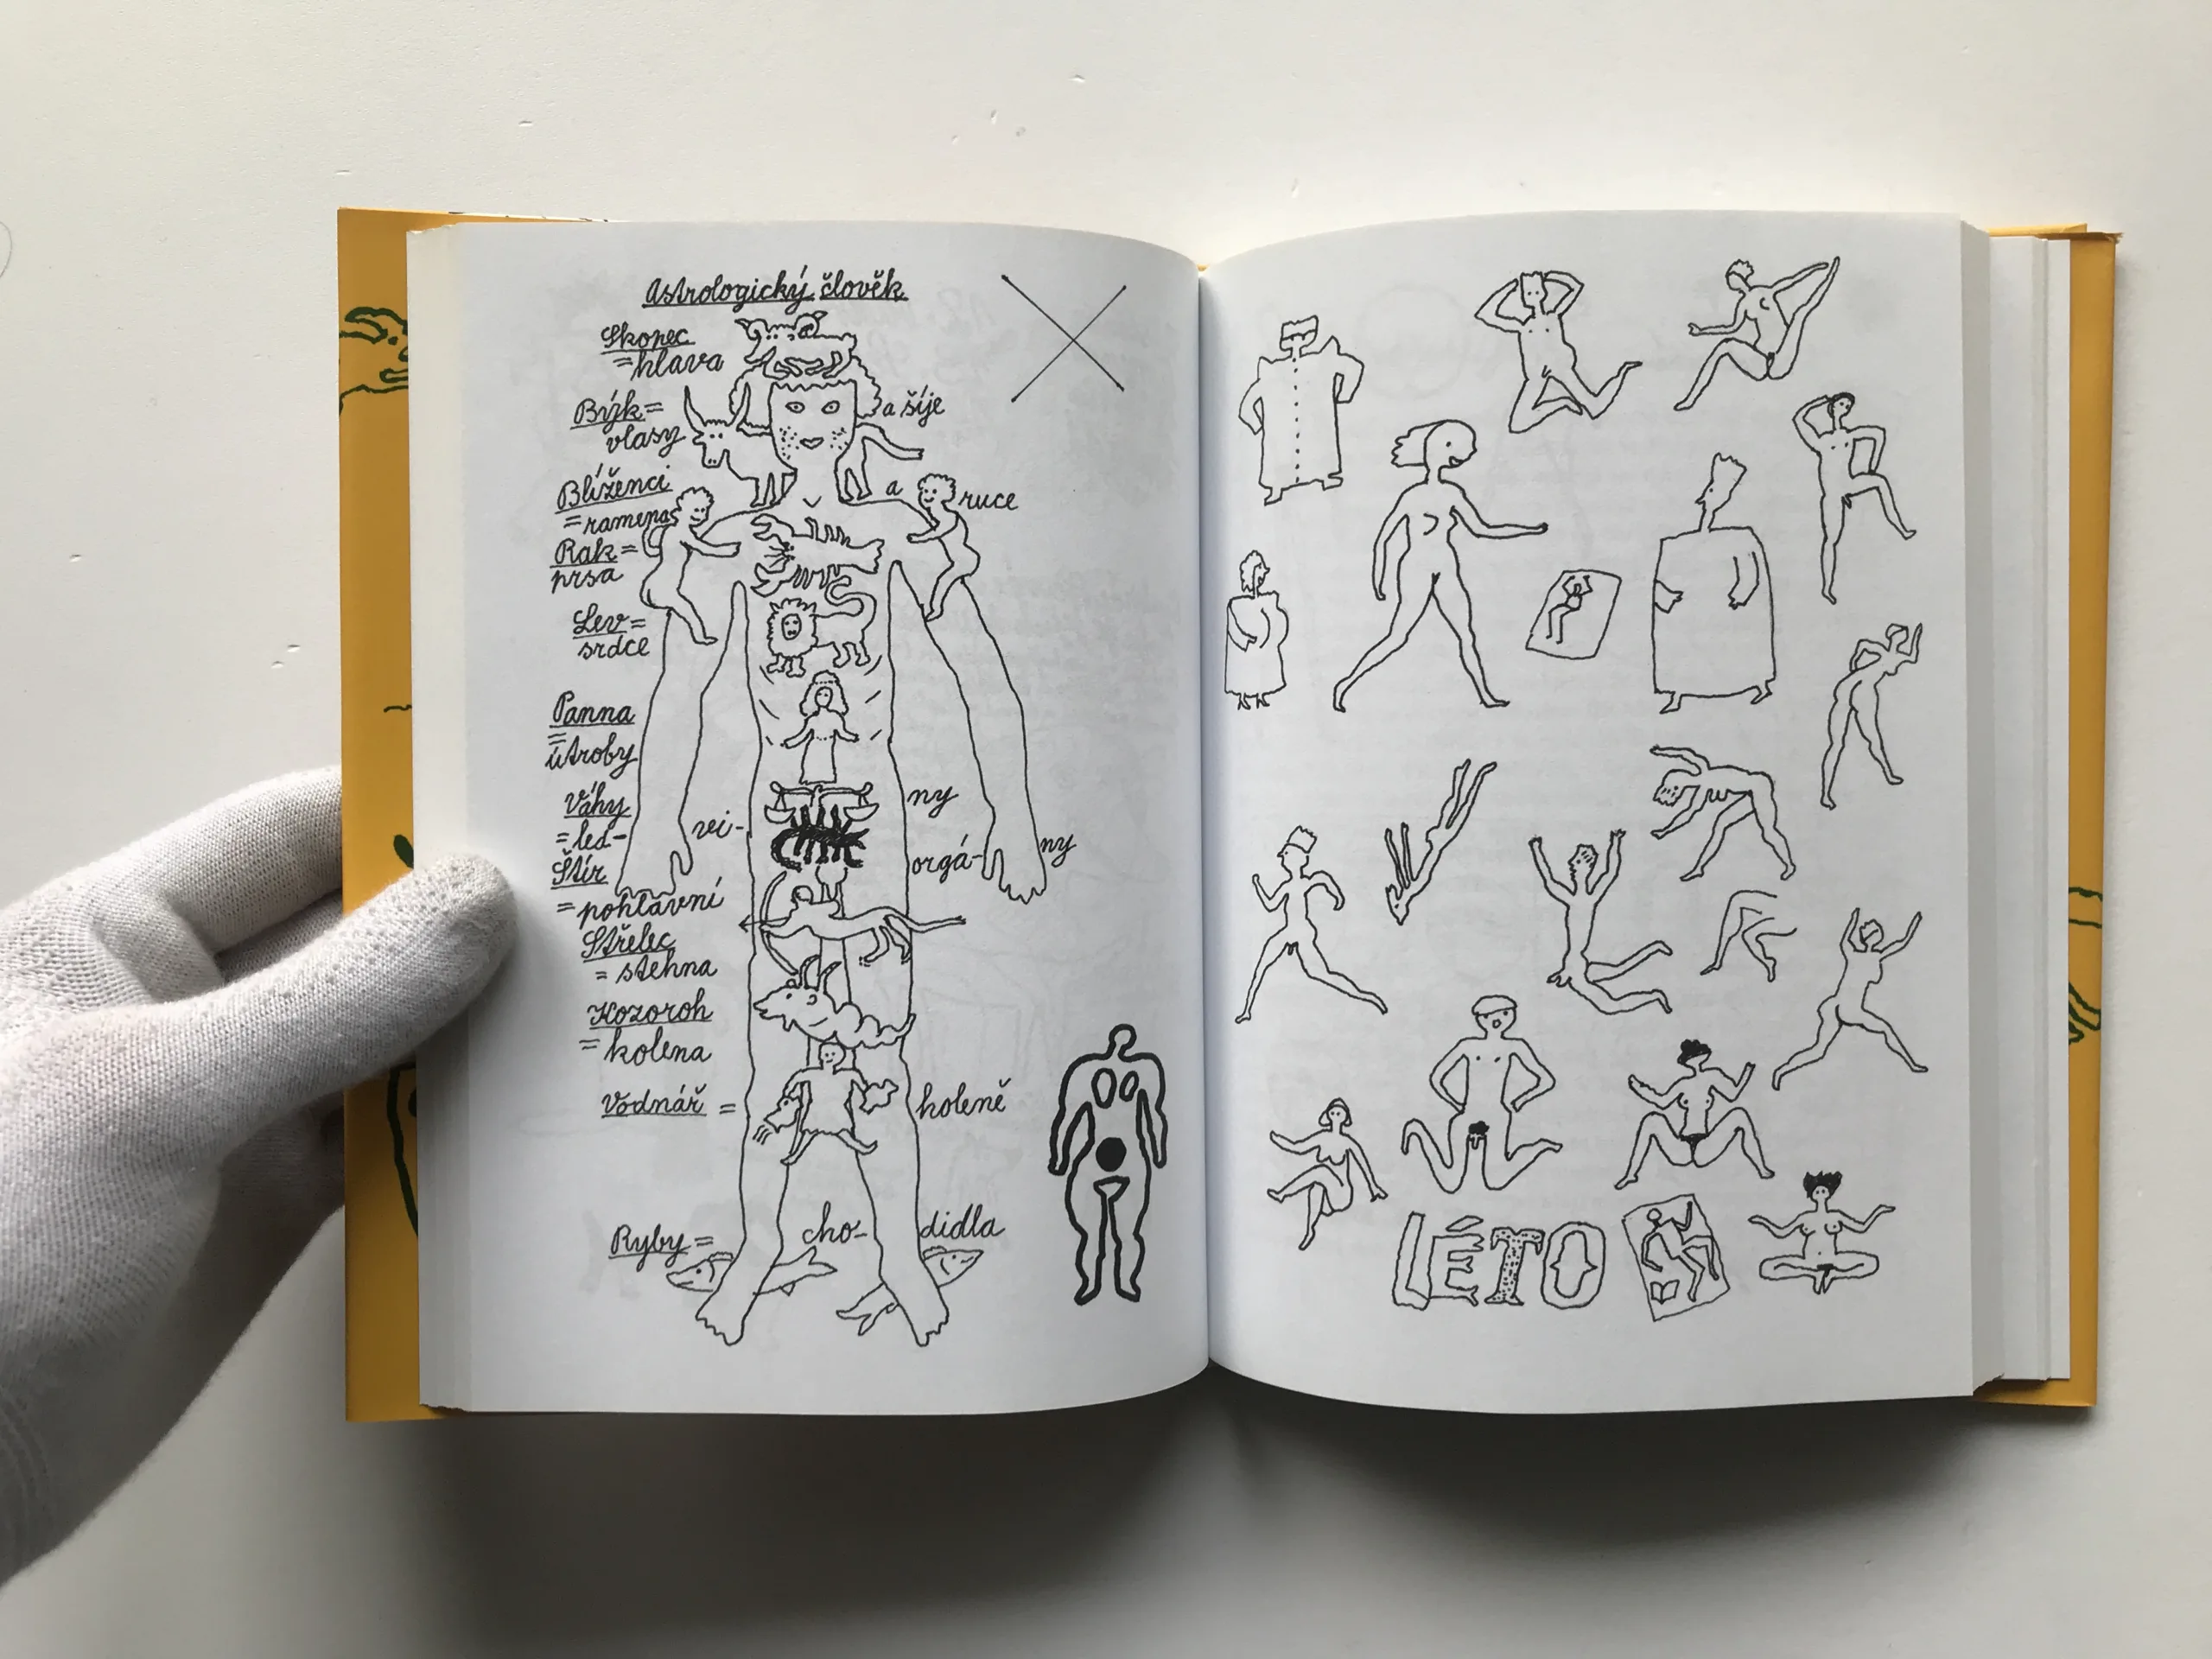 Astrologický člověk
Skopec
=hlava
Býk=
vlasy
a šíje
Blíženci
=ramena
a ruce
Rak=
prsa
Lev=
srdce
Panna
=
útroby
Váhy
=led-
vi-
ny
Štír
=pohlavní
orgá-
ny
Střelec
= stehna
Kozoroh
= kolena
Vodnář =
holeně
Ryby=
cho-
didla
LÉTO